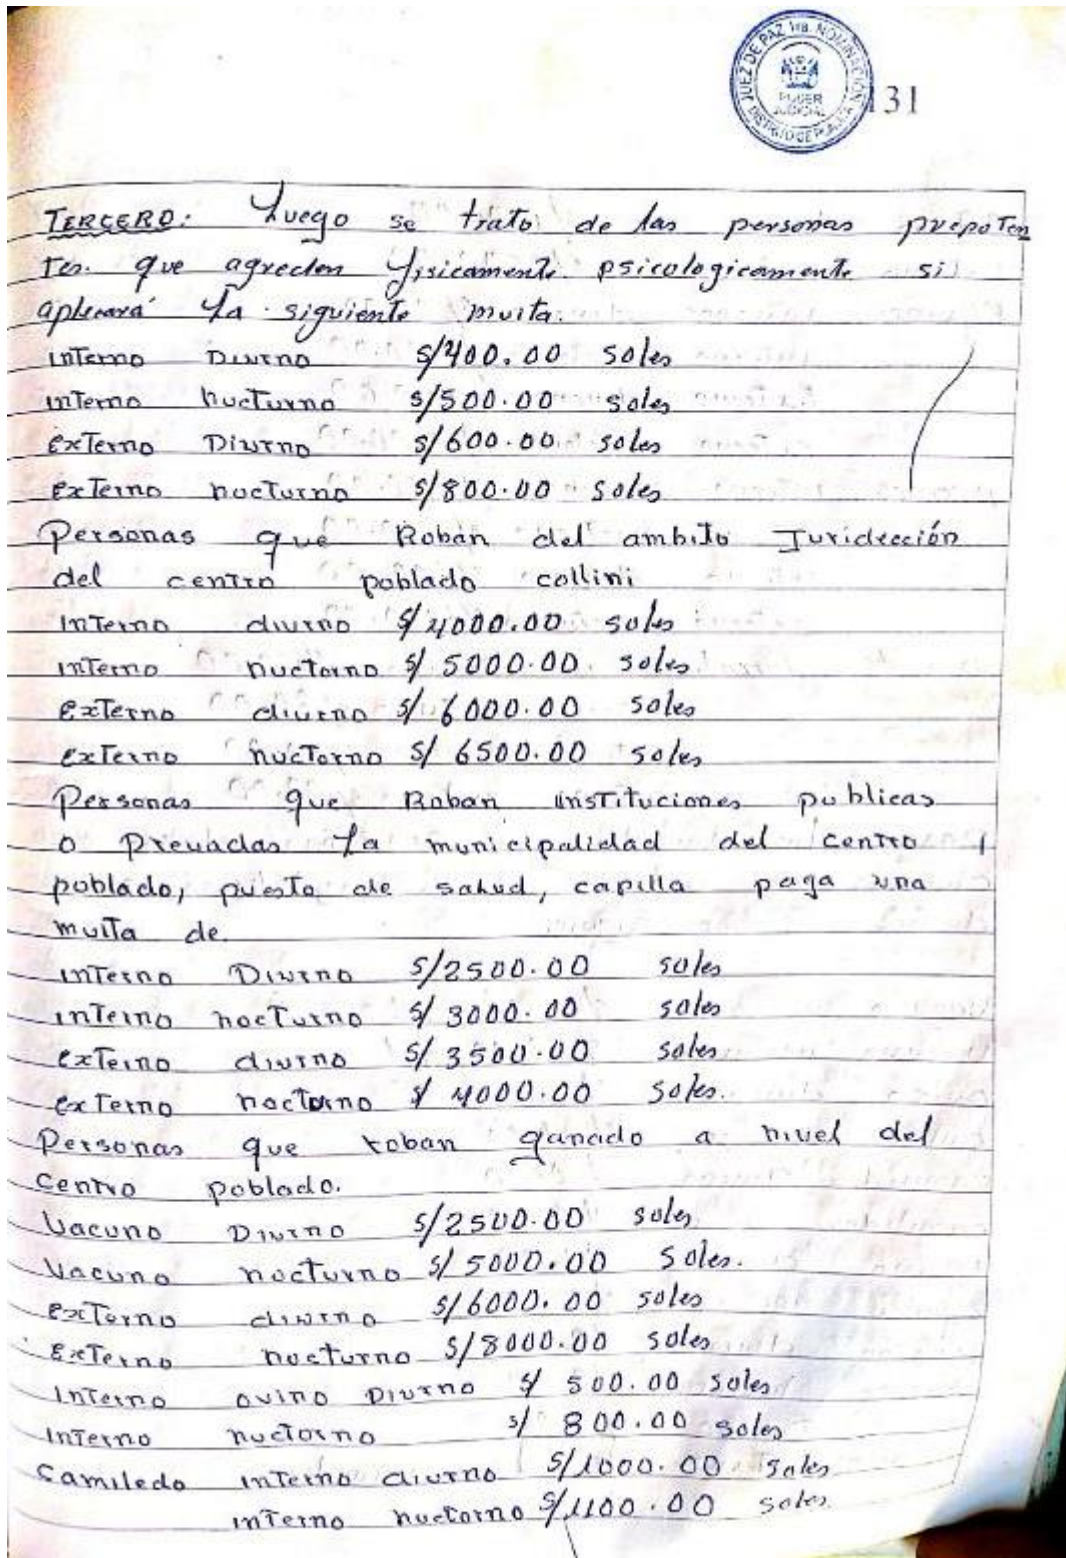 JUEZ DE PAZ 1RA. NOMINACIÓN
PODER
JUDICIAL
131
TERCERO: Luego se trato de las personas prepoten
tes. que agreden fisicamente psicologicamente si
aplicará la siguiente multa.
interno Diurno S/400.00 soles
interno nucturno S/500.00 soles
externo Diurno S/600.00 soles
externo nocturno S/800.00 soles
Personas que Roban del ambito Juridección
del centro poblado collini
interno diurno S/4000.00 soles
interno nuctorno S/ 5000.00 soles
externo diurno S/ 6000.00 soles
externo nuctorno S/ 6500.00 soles
Personas que Roban instituciones publicas
o Prevadas la municipalidad del centro
poblado, puesto de salud, capilla paga una
multa de.
interno Diurno S/2500.00 soles
interno nocturno S/ 3000.00 soles
externo diurno S/ 3500.00 soles
externo noctorno S/ 4000.00 soles.
Personas que roban ganado a nivel del
Centro poblado.
Vacuno Diurno S/2500.00 soles
Vacuno nocturno S/ 5000.00 Soles.
externo diurno S/6000.00 soles
externo nocturno S/8000.00 soles
interno ovino Diurno S/ 500.00 soles
interno nuctorno S/ 800.00 soles
Camiledo interno diurno S/1000.00 soles
interno nuctorno S/1100.00 soles